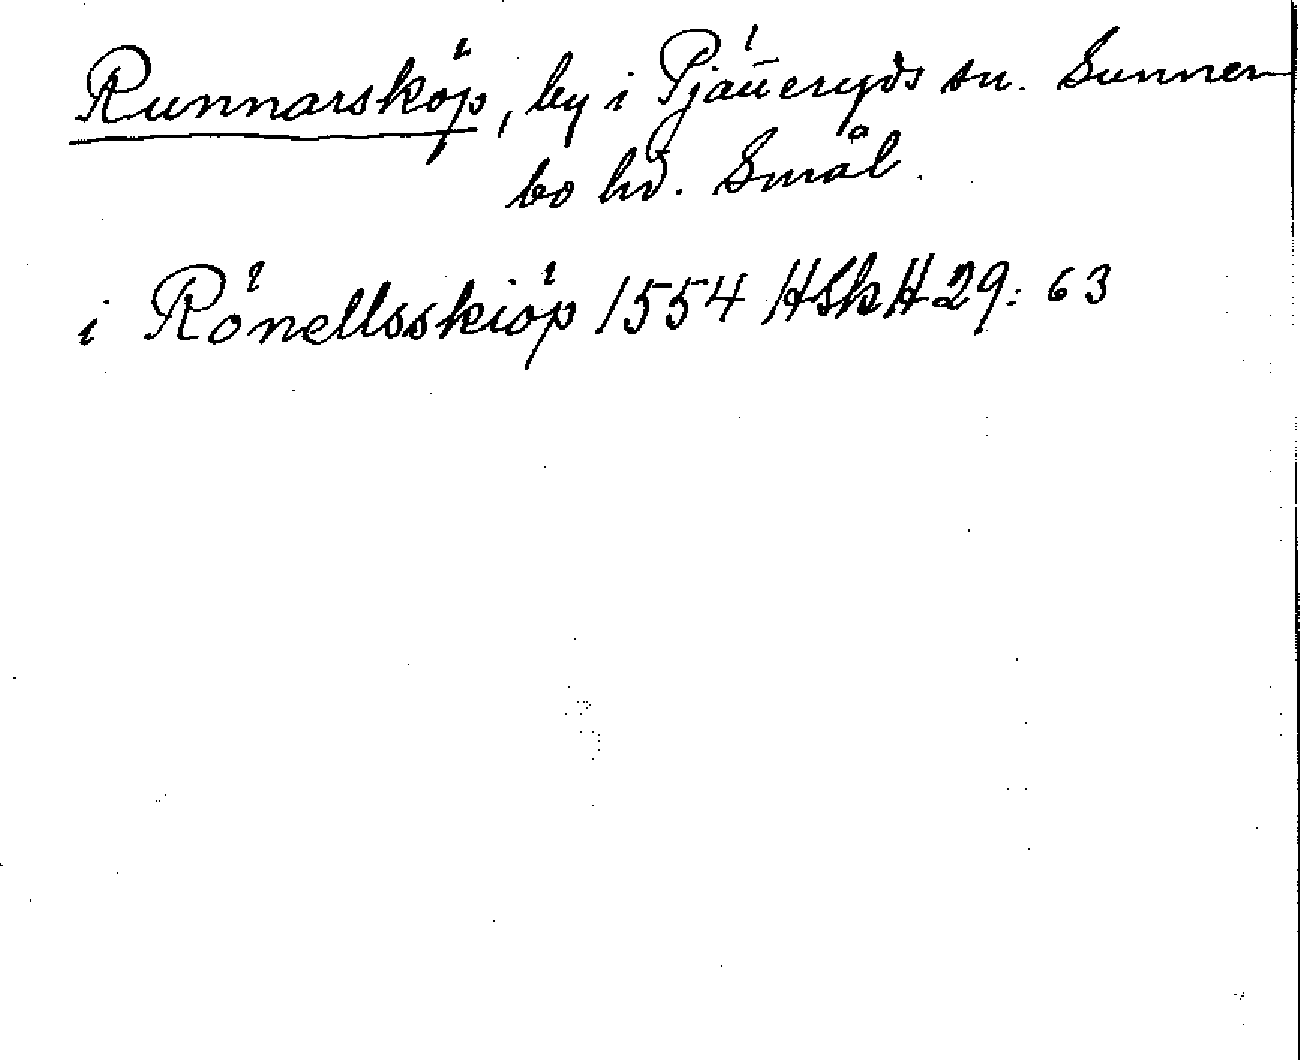 Runnarsköp, by i Pjätteryds sn. Sunner
bo hd. Smål.
i Rönellsskiöp 1554 HSkH 29: 63